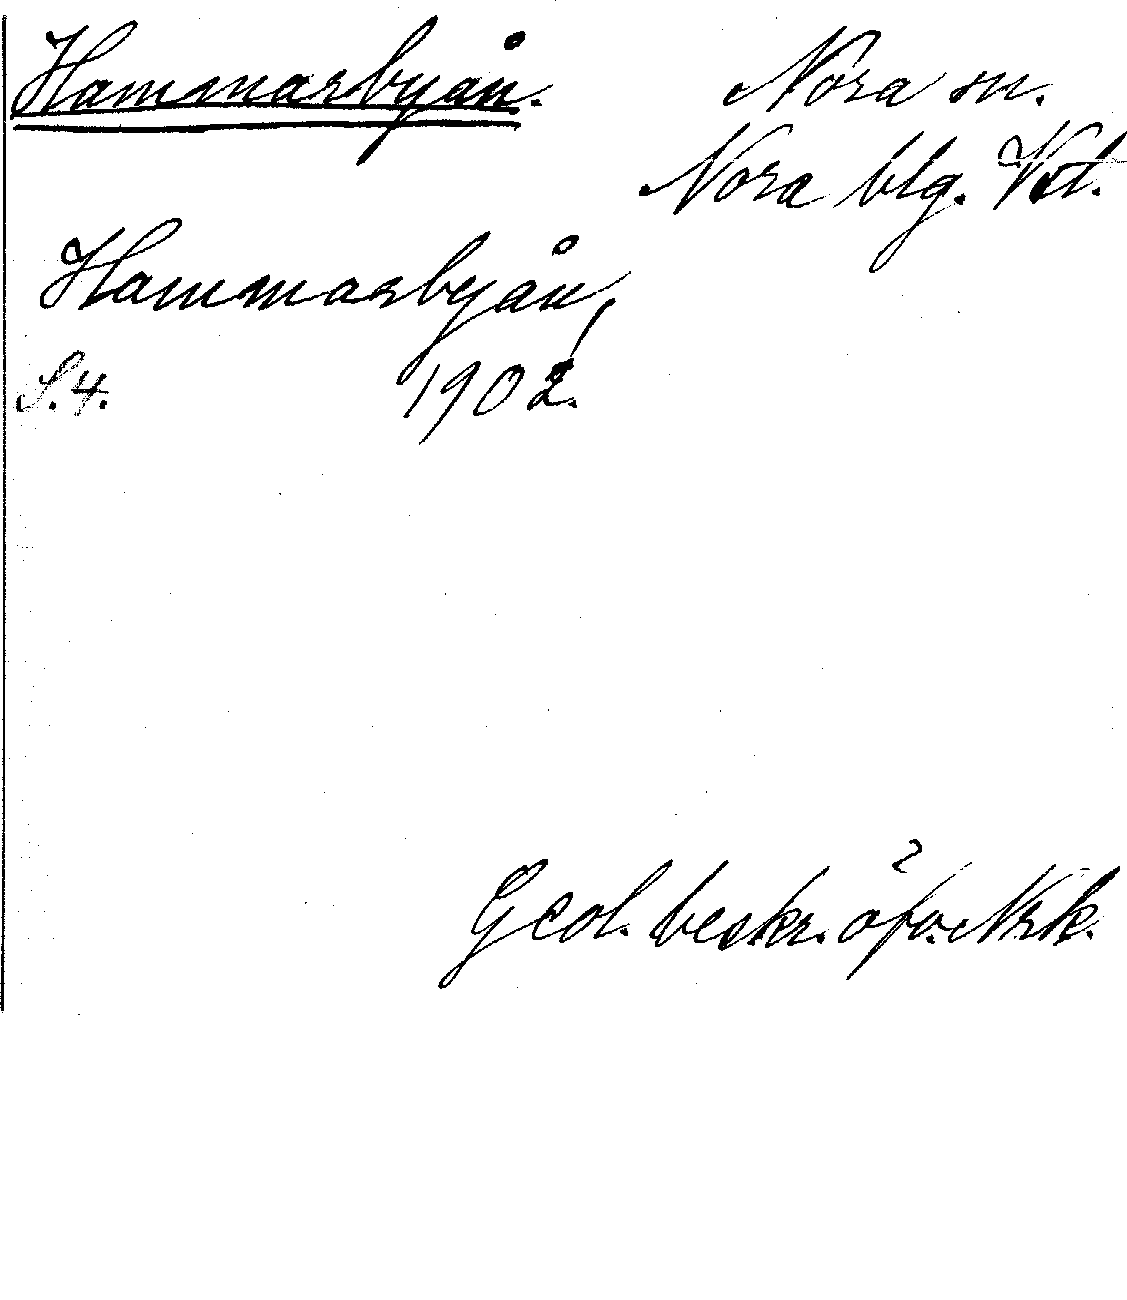 Hammarbyån.
Nora sn.
Nora blg. Vstl.
Hammarbyån,
S. 4. 1902.
Geol. beskr. öfv. Nrk.